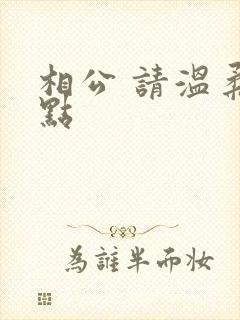 相公 請溫柔
點
為誰半面妝